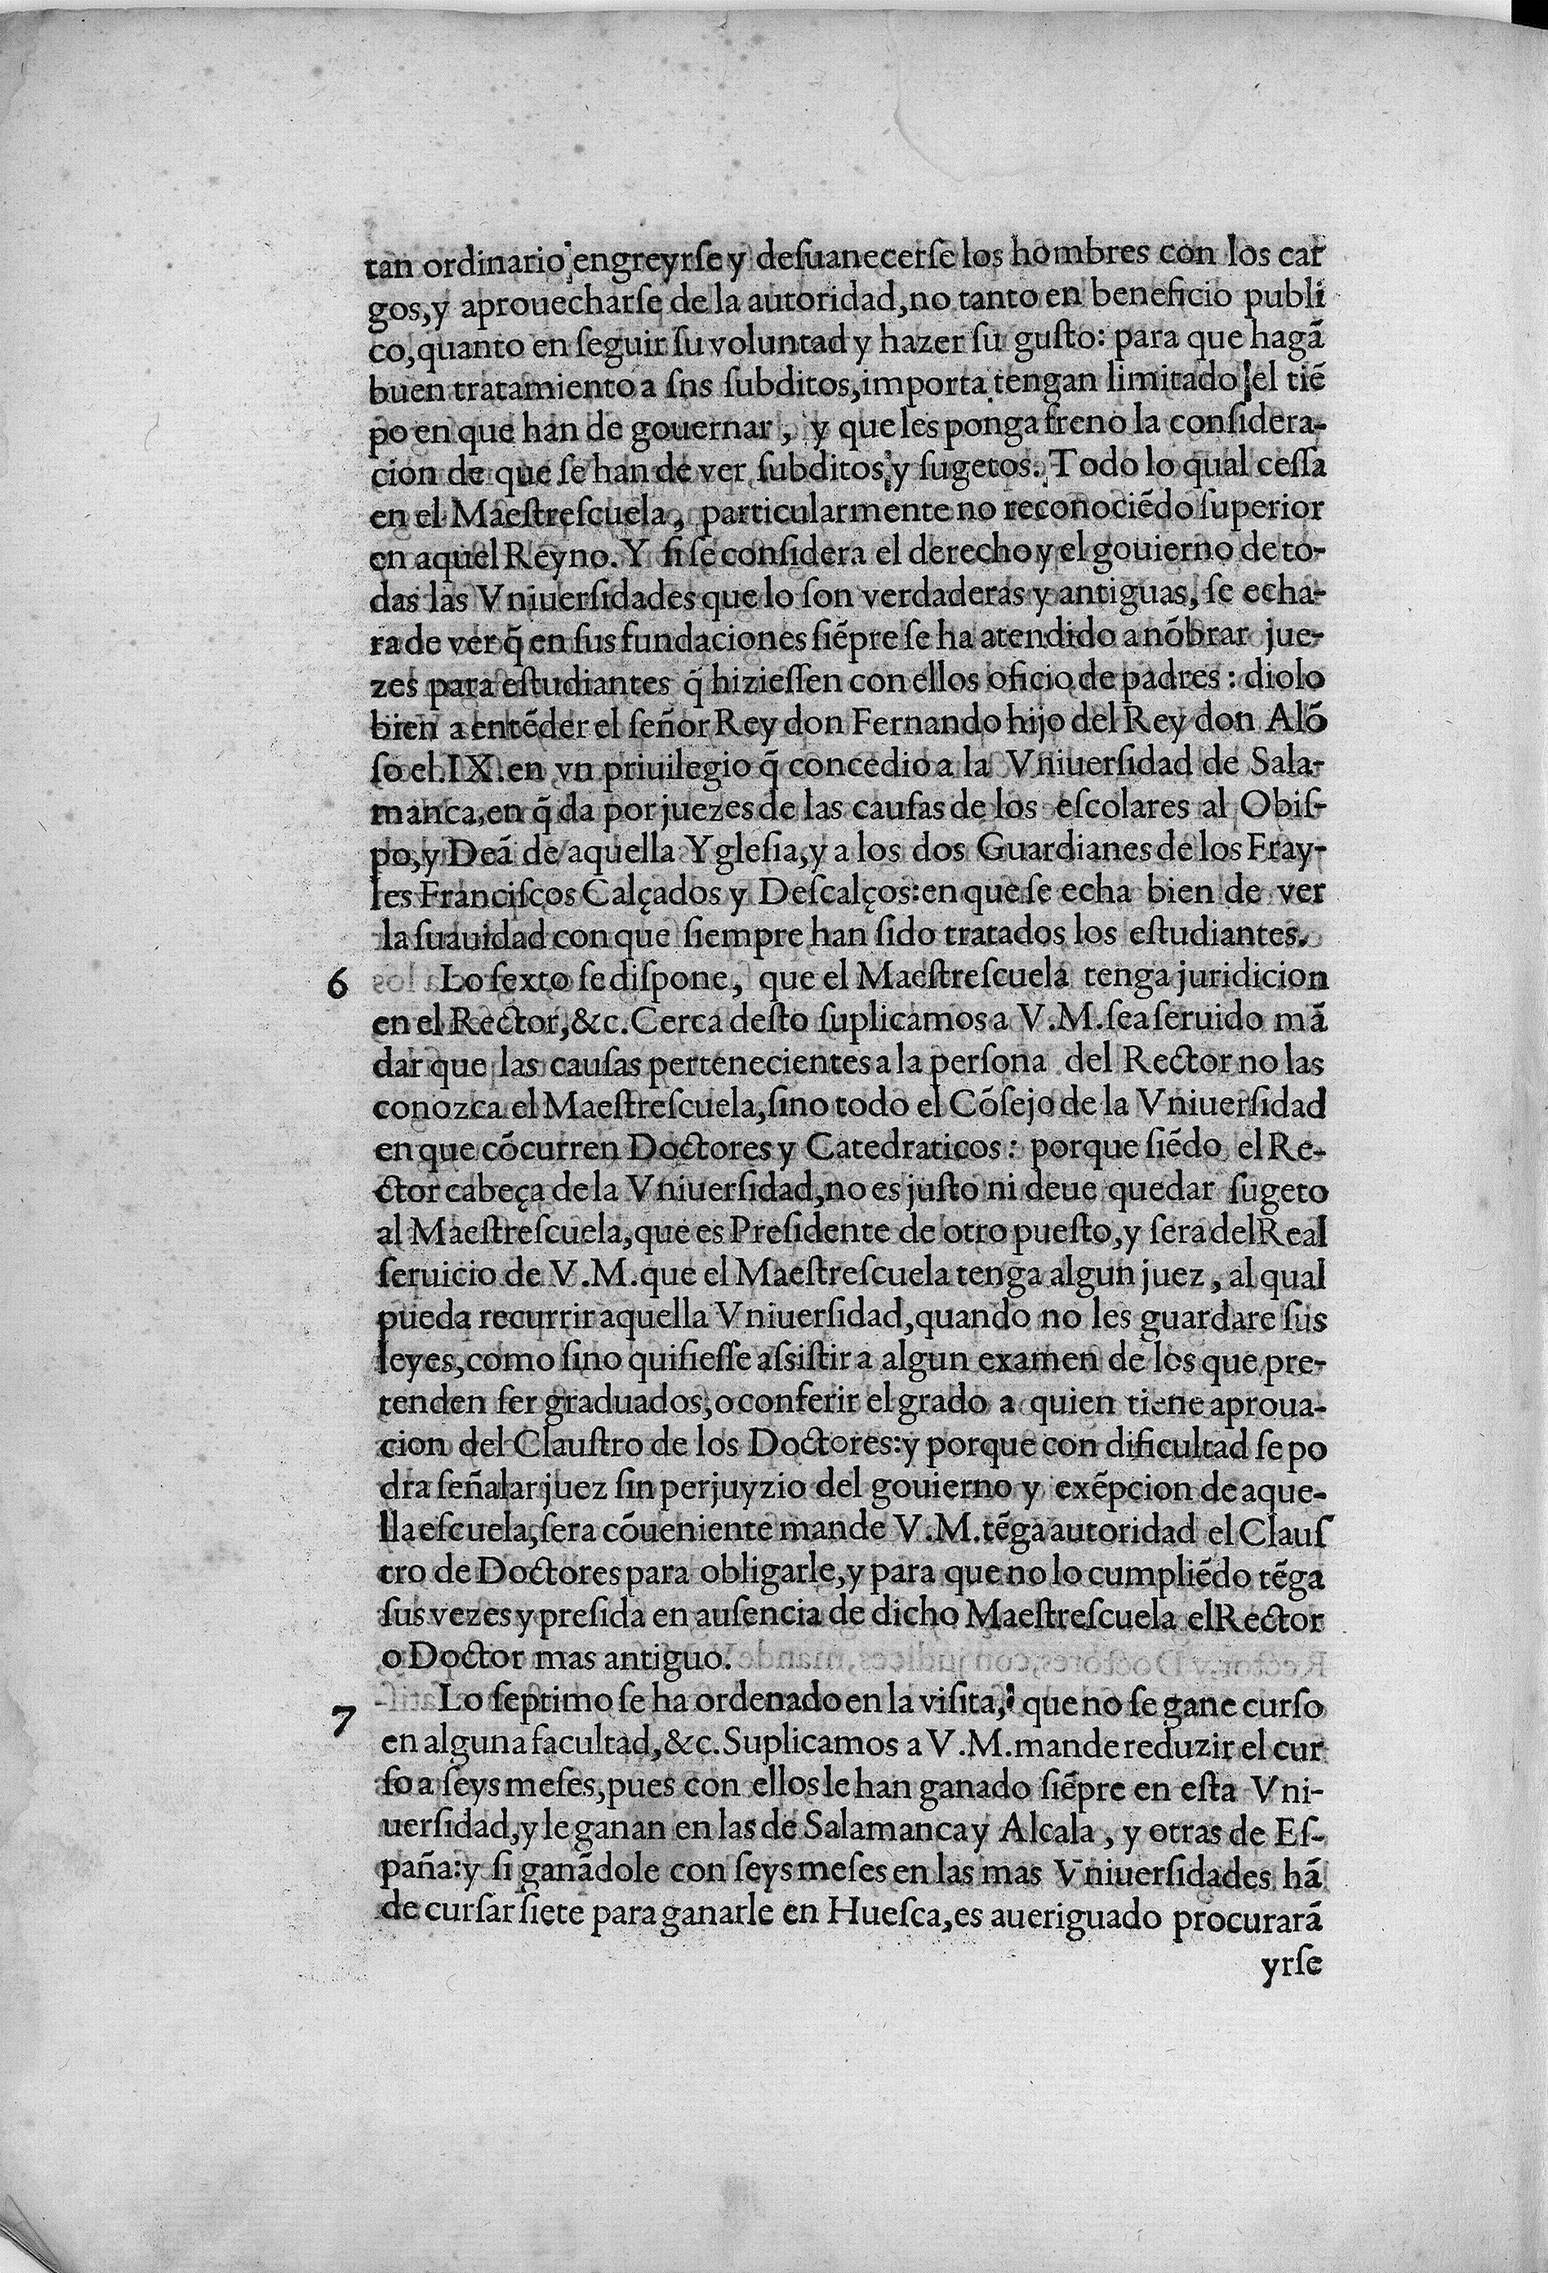 tan ordinario engreyrſe y deſuanecerſe los hombres con los car
gos,y aprouecharſe de la autoridad,no tanto en beneficio publi
co,quanto en ſeguir ſu voluntad y hazer ſu guſto: para que hagã
buen tratamiento a ſns ſubditos,importa tengan limitado el tiẽ
po en que han de gouernar, y que les ponga freno la conſidera-
cion de que ſe han de ver ſubditos y ſugetos. Todo lo qual ceſſa
en el Maeſtreſcuela, particularmente no reconociẽdo ſuperior
en aquel Reyno. Y ſi ſe conſidera el derecho y el gouierno de to-
das las Vniuerſidades que lo ſon verdaderas y antiguas, ſe echa-
ra de ver q̃ en ſus fundaciones ſiẽpre ſe ha atendido a nõbrar jue-
zes para eſtudiantes q̃ hizieſſen con ellos oficio de padres: diolo
bien a entẽder el ſeñor Rey don Fernando hijo del Rey don Alõ
ſo el IX. en vn priuilegio q̃ concedio a la Vniuerſidad de Sala-
manca,en q̃ da por juezes de las cauſas de los eſcolares al Obiſ-
po,y Deã de aquella Ygleſia,y a los dos Guardianes de los Fray-
les Franciſcos Calçados y Deſcalços:en que ſe echa bien de ver
la ſuauidad con que ſiempre han ſido tratados los eſtudiantes.
6 Lo ſexto ſe diſpone, que el Maeſtreſcuela tenga juridicion
en el Rector,&c. Cerca deſto ſuplicamos a V.M. ſea ſeruido mã
dar que las cauſas pertenecientes a la perſona del Rector no las
conozca el Maeſtreſcuela,ſino todo el Cõſejo de la Vniuerſidad
en que cõcurren Doctores y Catedraticos: porque ſiẽdo el Re-
ctor cabeça de la Vniuerſidad,no es juſto ni deue quedar ſugeto
al Maeſtreſcuela,que es Preſidente de otro pueſto,y ſera del Real
ſeruicio de V.M. que el Maeſtreſcuela tenga algun juez, al qual
pueda recurrir aquella Vniuerſidad,quando no les guardare ſus
leyes,como ſino quiſieſſe aſsiſtir a algun examen de los que pre-
tenden ſer graduados,o conferir el grado a quien tiene aproua-
cion del Clauſtro de los Doctores:y porque con dificultad ſe po
dra ſeñalar juez ſin perjuyzio del gouierno y exẽpcion de aque-
lla eſcuela,ſera cõueniente mande V.M. tẽga autoridad el Clauſ
tro de Doctores para obligarle,y para que no lo cumpliẽdo tẽga
ſus vezes y preſida en auſencia de dicho Maeſtreſcuela el Rector
o Doctor mas antiguo.
7 Lo ſeptimo ſe ha ordenado en la viſita, que no ſe gane curſo
en alguna facultad,&c. Suplicamos a V.M. mande reduzir el cur
ſo a ſeys meſes,pues con ellos le han ganado ſiẽpre en eſta Vni-
uerſidad,y le ganan en las de Salamanca y Alcala, y otras de Eſ-
paña:y ſi ganãdole con ſeys meſes en las mas Vniuerſidades hã
de curſar ſiete para ganarle en Hueſca,es aueriguado procurarã
yrſe